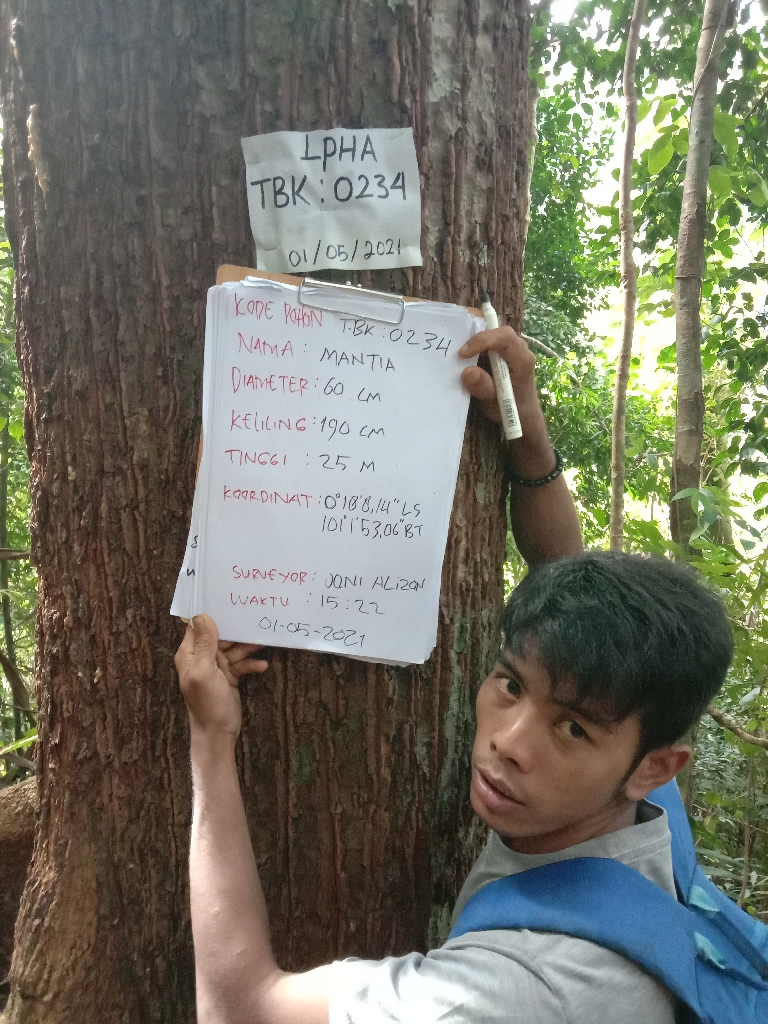 LPHA
TBK : 0234
01/05/2021
KODE POHON TBK : 0234
NAMA : MANTIA
DIAMETER : 60 CM
KELILING : 190 CM
TINGGI : 25 M
KOORDINAT : 0°18'8,14" LS
101°1'53,06" BT
SURVEYOR : JONI ALIZON
WAKTU : 15 : 22
01-05-2021